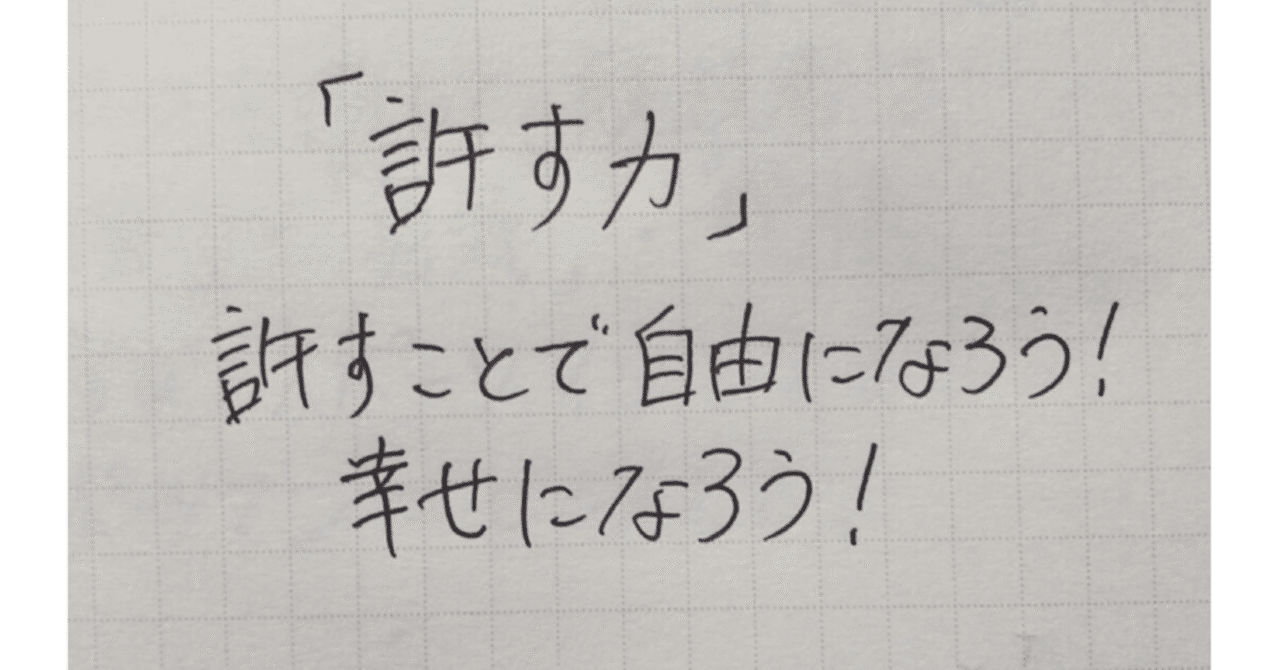 「許す力」
許すことで自由になろう!
幸せになろう!